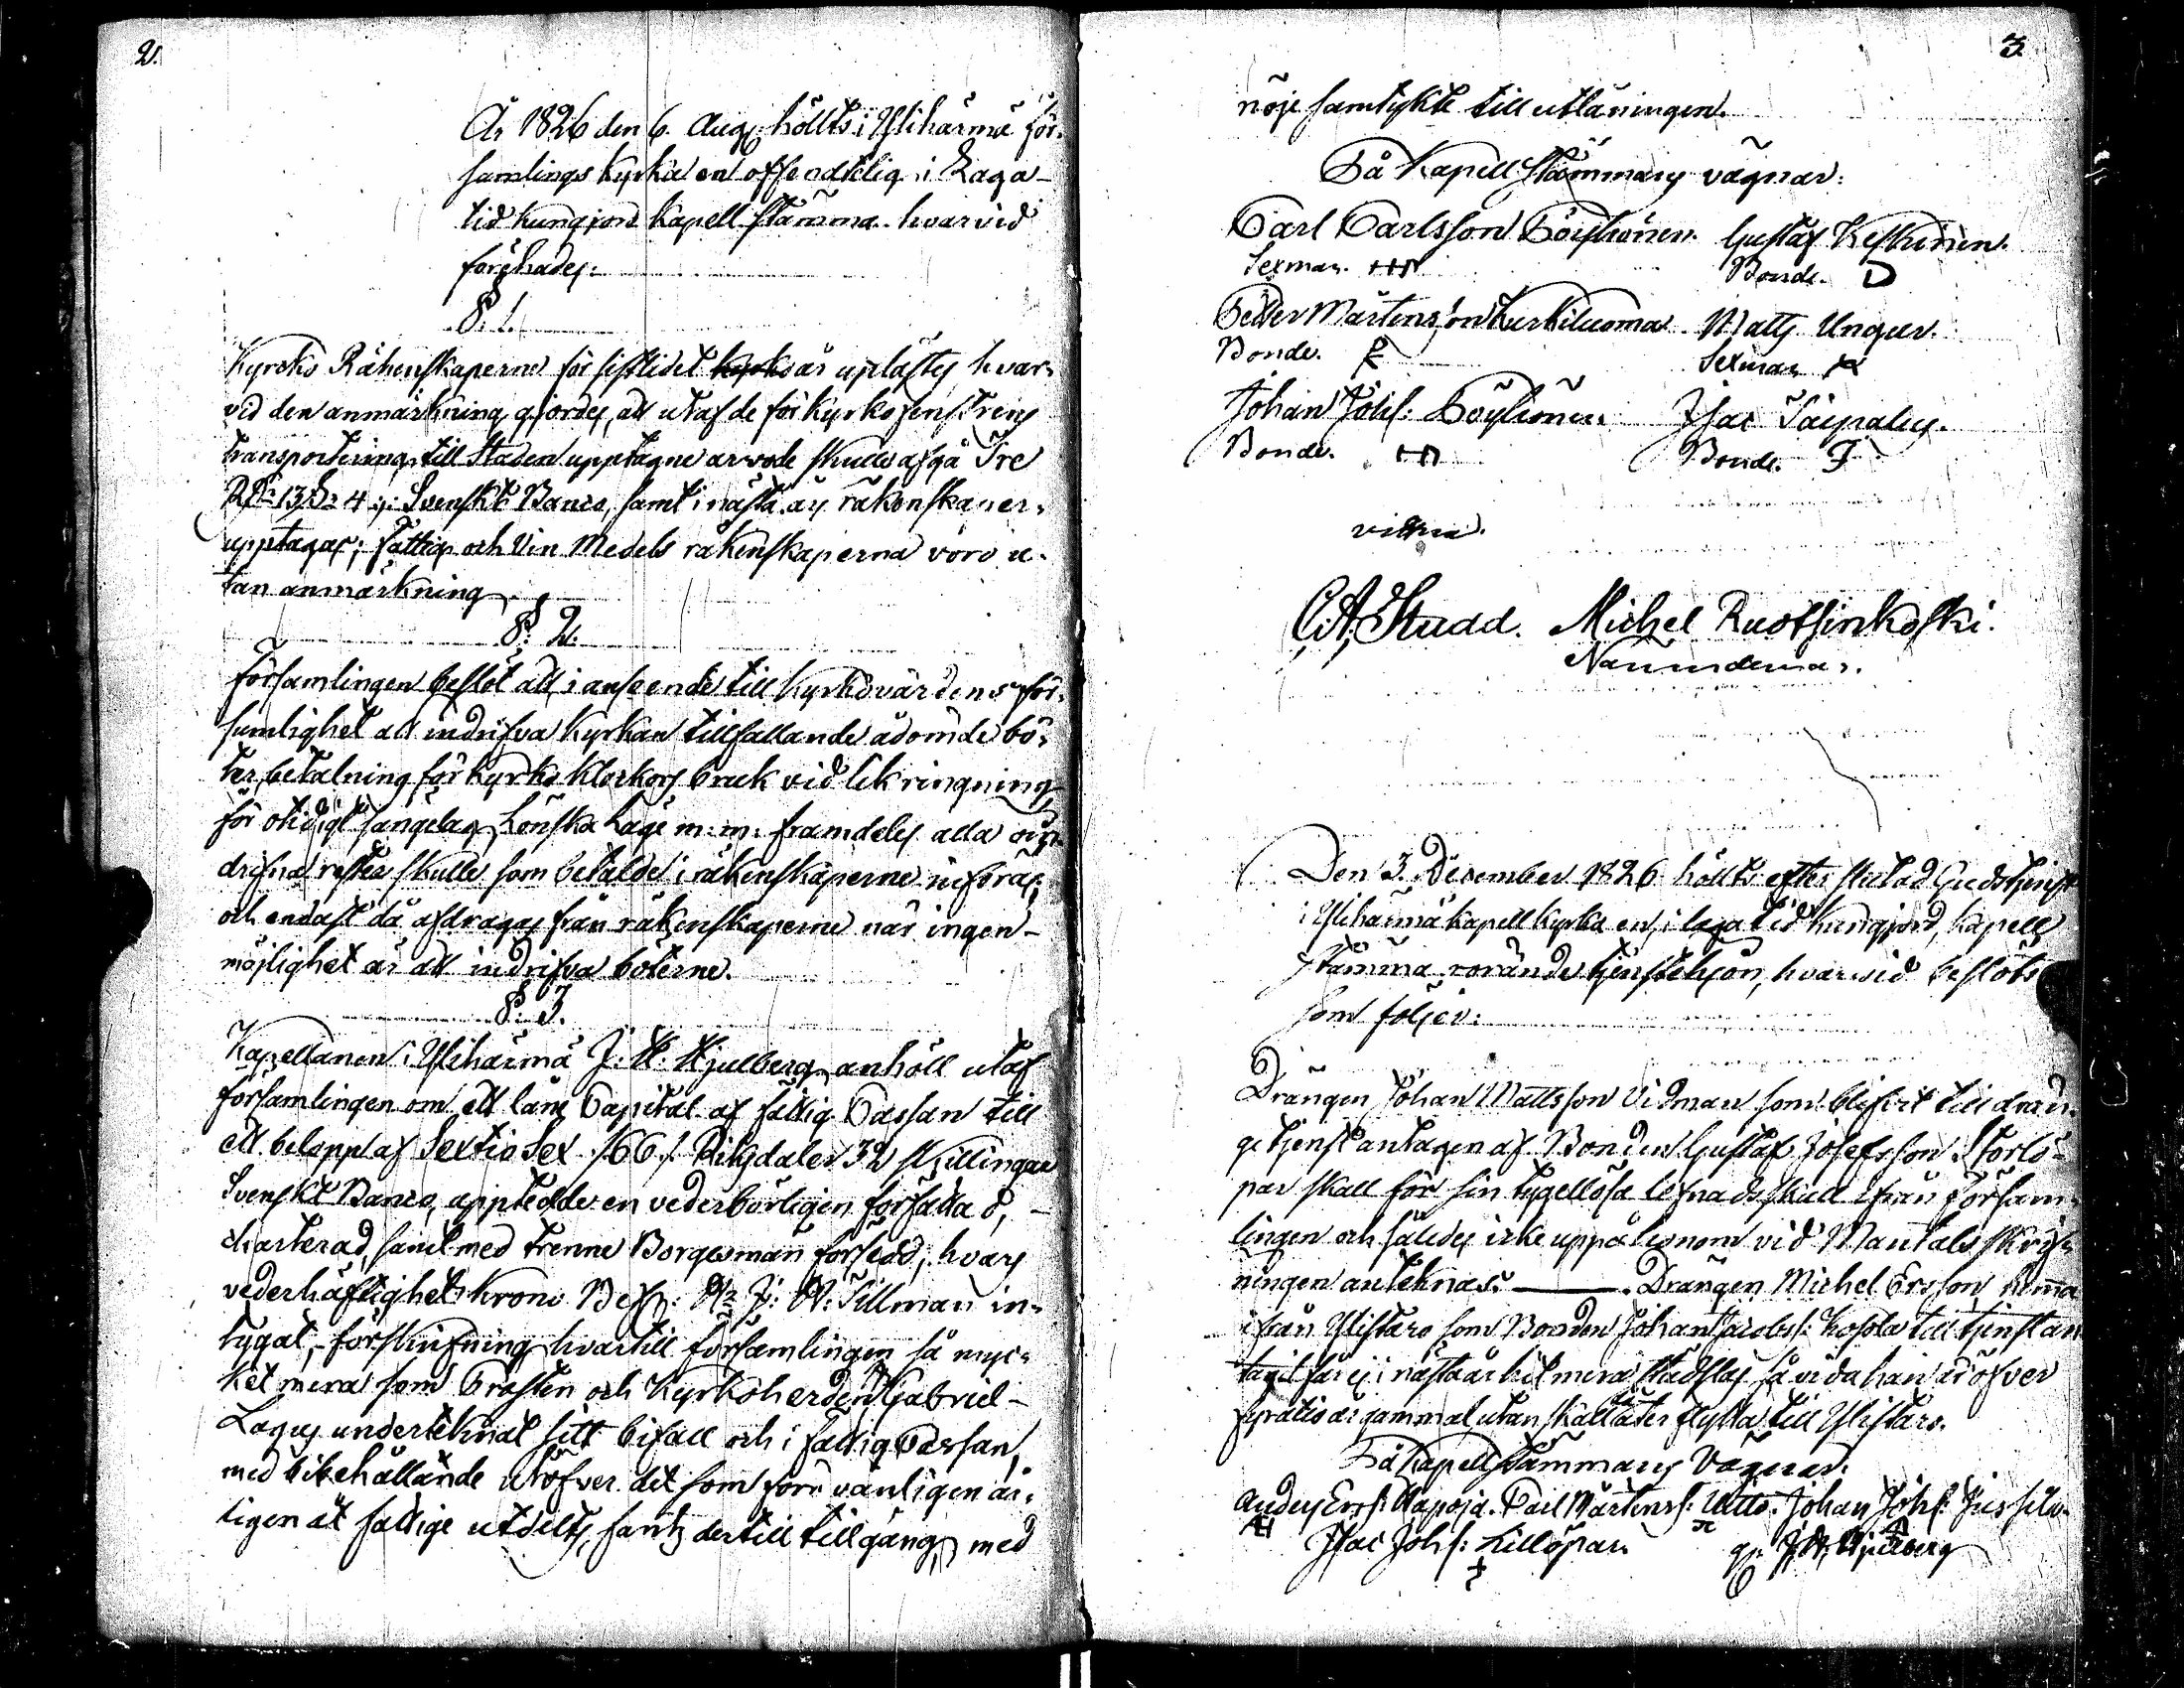 2.
År 1826 den 6. Aug. hölts i Ylihärmä för-
samlings Kyrka en offendtelig i Laga
tid kungjord Kapell stämma hvarvid
förehades:
§: 1.
Kyrcko Räkenskaperne för sistlidet kyrko år uplästes hvar-
vid den anmärkning gjordes, att utaf de för kyrkofenstrens
transportering till Staden upptagne arvode skulle afgå Tre
Rd 13 s 4 Svenskt Banco, samt i nästa års räkenskaper
upptagas; Fattig och Vin Medels räkenskaperna voro u-
tan anmärkning.
§: 2.
Församlingen beslöt att i anseende till Kyrkovärdens för-
sumlighet att indrifva Kyrkan tillfallande ådömde bö-
ter, betalning för Kyrko klockors bruk vid likringning
för otidigt sängelag, Lönska Läge m: m: framdeles alla oin-
drifna rester skulle som betalde i räkenskaperne införas
och endast då afdragas från räkenskaperne när ingen
möjlighet är att indrifva böterne.
§: 3.
Kapellanen i Ylihärmä J: H: Hjulberg anhöll utaf
församlingen om ett låne Capital af Fattig Cassan till
ett belopp af Sextiosex /66/ Riksdaler 32 skillingar
Svenskt Banco, uppteedde en vederbörligen författad,
charterad, samt med trenne Borgesmän försedd, hvars
vederhäftighet krono Bef: H: J: W: Tillman in-
tygat, förskrifning hvartill församlingen så myc-
ket mera som Prosten och Kyrkoherden Gabriel
Lagus undertecknat sitt bifall och i fattig Cassan,
med bibehållande utöfver det som förr vanligen år-
ligen åt fattige utdelts, fants dertill tillgång, med
3.
nöje samtykte till utlåningen.
På Kapell Stämmans vägnar:
Carl Carlsson Pöyhönen. Gustaf Keskinen.
Sexman. Bonde. D
Petter Mårtensson Kurkiluoma Matts Ungur.
Bonde. Sexman
Johan Johs: Pöyhönen Isac Säippalus.
Bonde. Bonde. F
vittna.
C. A. Studd. Michel Ruotsinkoski.
Nämndeman.
Den 3. December 1826 hölts efter slutad Gudstjenst
i Ylihärmä kapell kyrka en i laga tid kungjord, Kapell
stämma rörande tjenstehjon, hvarvid beslöts
som följer:
Drängen Johan Mattsson Vidman som blifvit till drän-
getjenst antagen af Bonden Gustaf Josefsson Storlö-
par skall för sin tygellösa lefnads skull ifrån Försam-
lingen och således icke uppå honom vid Mantals skrif-
ningen anteknas. Drängen Michel Ersson hemma
ifrån Ylistaro som Bonden Johan Jacobs: Kosola till tjenst an-
tagit får ej i nästa år hit mera städslas så vida han är öfver
fyratio år gammal utan skall åter flytta till Ylistaro.
På Kapell stämmans Vägnar:
Anders Ers: Haapoja. Carl Mårtens: Utto. Johan Johs: Jussila.
Isac Johs: Lillöpar. J H. Hjulberg